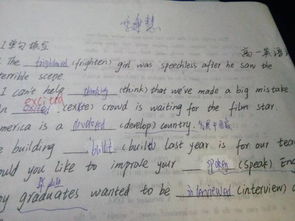 I 学习填空
高一英语
The frightened (frighten) girl was speechless after he saw the
terrible scene.
I can't help thinking (think) that we've made a big mistake
An excited (excite) crowd is waiting for the film star.
America is a developed (develop) country.
e building built (build) last year is for our tea
ould you like to improve your (speak) Eng
ny graduates wanted to be interviewed (interview) c